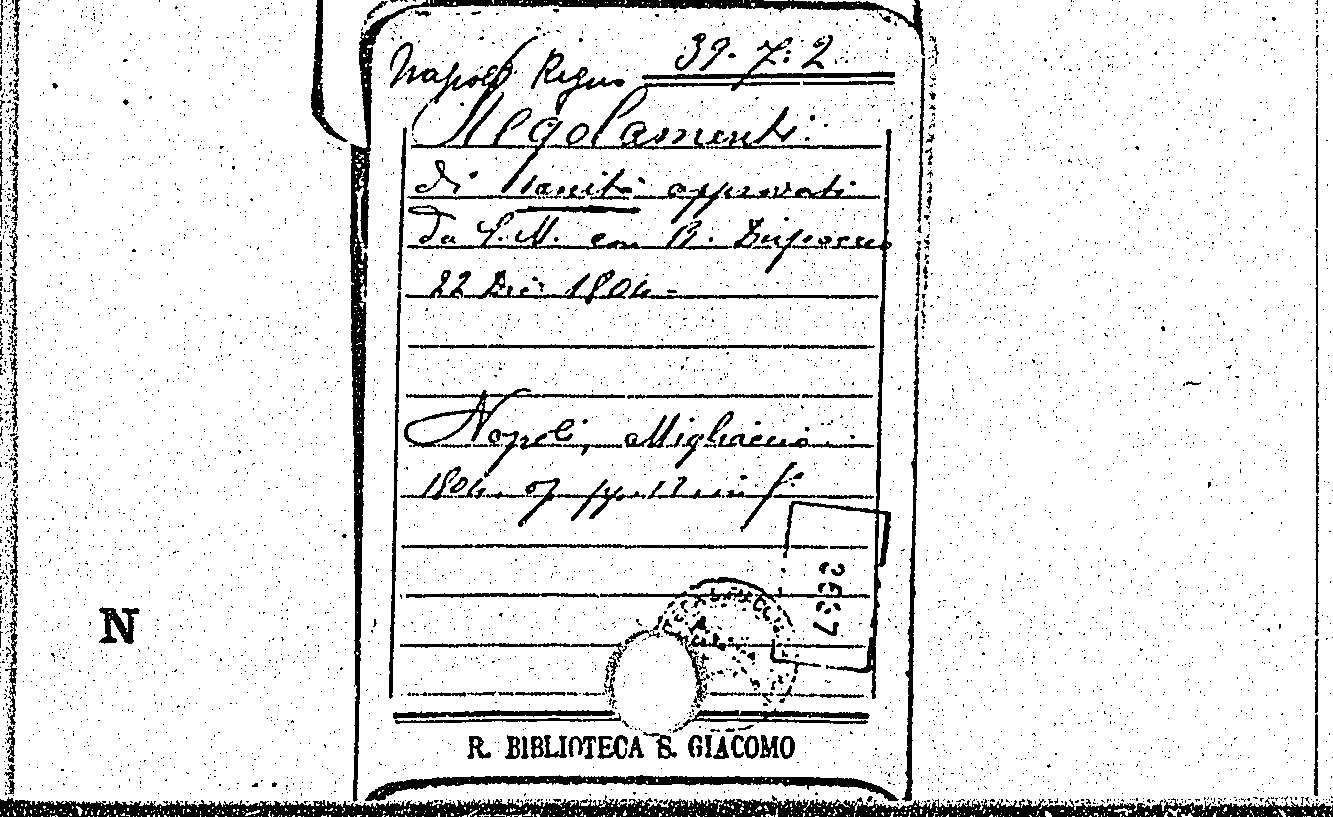 Napoli Regno 39. 7. 2
Regolamenti
di Sanità approvati
da S. M. con R. Dispaccio
22 Dic. 1804 -
Napoli, Migliaccio
1804. op. pp. 12. in f.°
2637
N
R. BIBLIOTECA S. GIACOMO